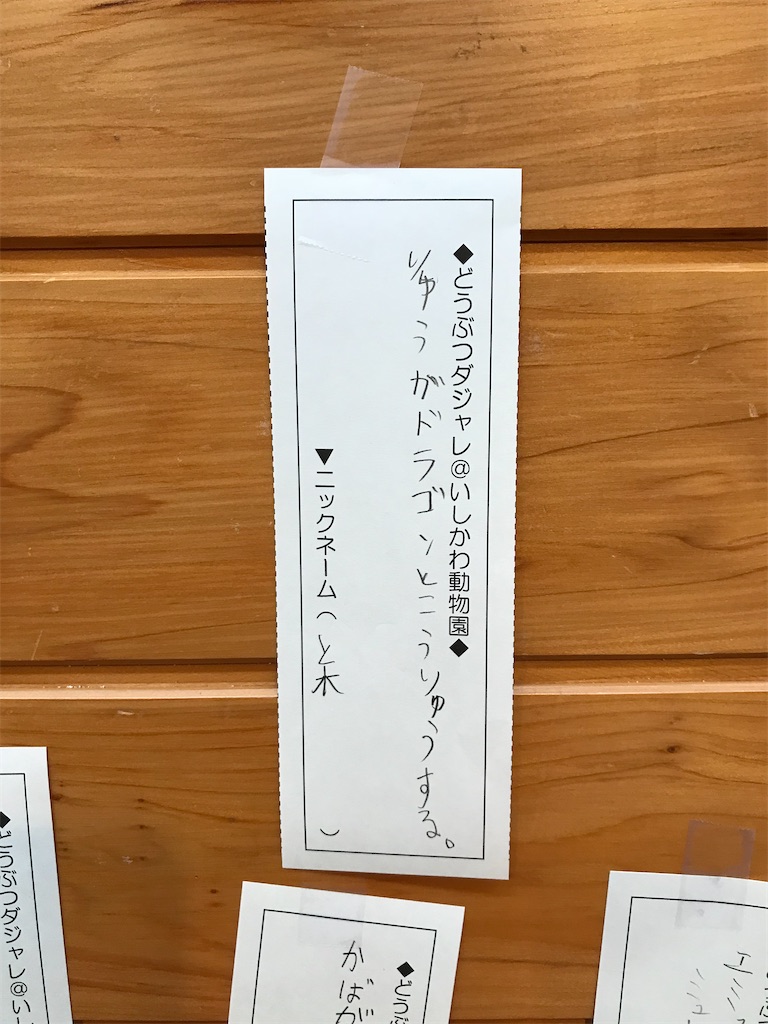 ◆どうぶつダジャレ@いしかわ動物園◆
りゅうがドラゴンとこうりゅうする。
▼ニックネーム(と木)
◆どうぶつダジャレ@い
◆どうぶ
かばが